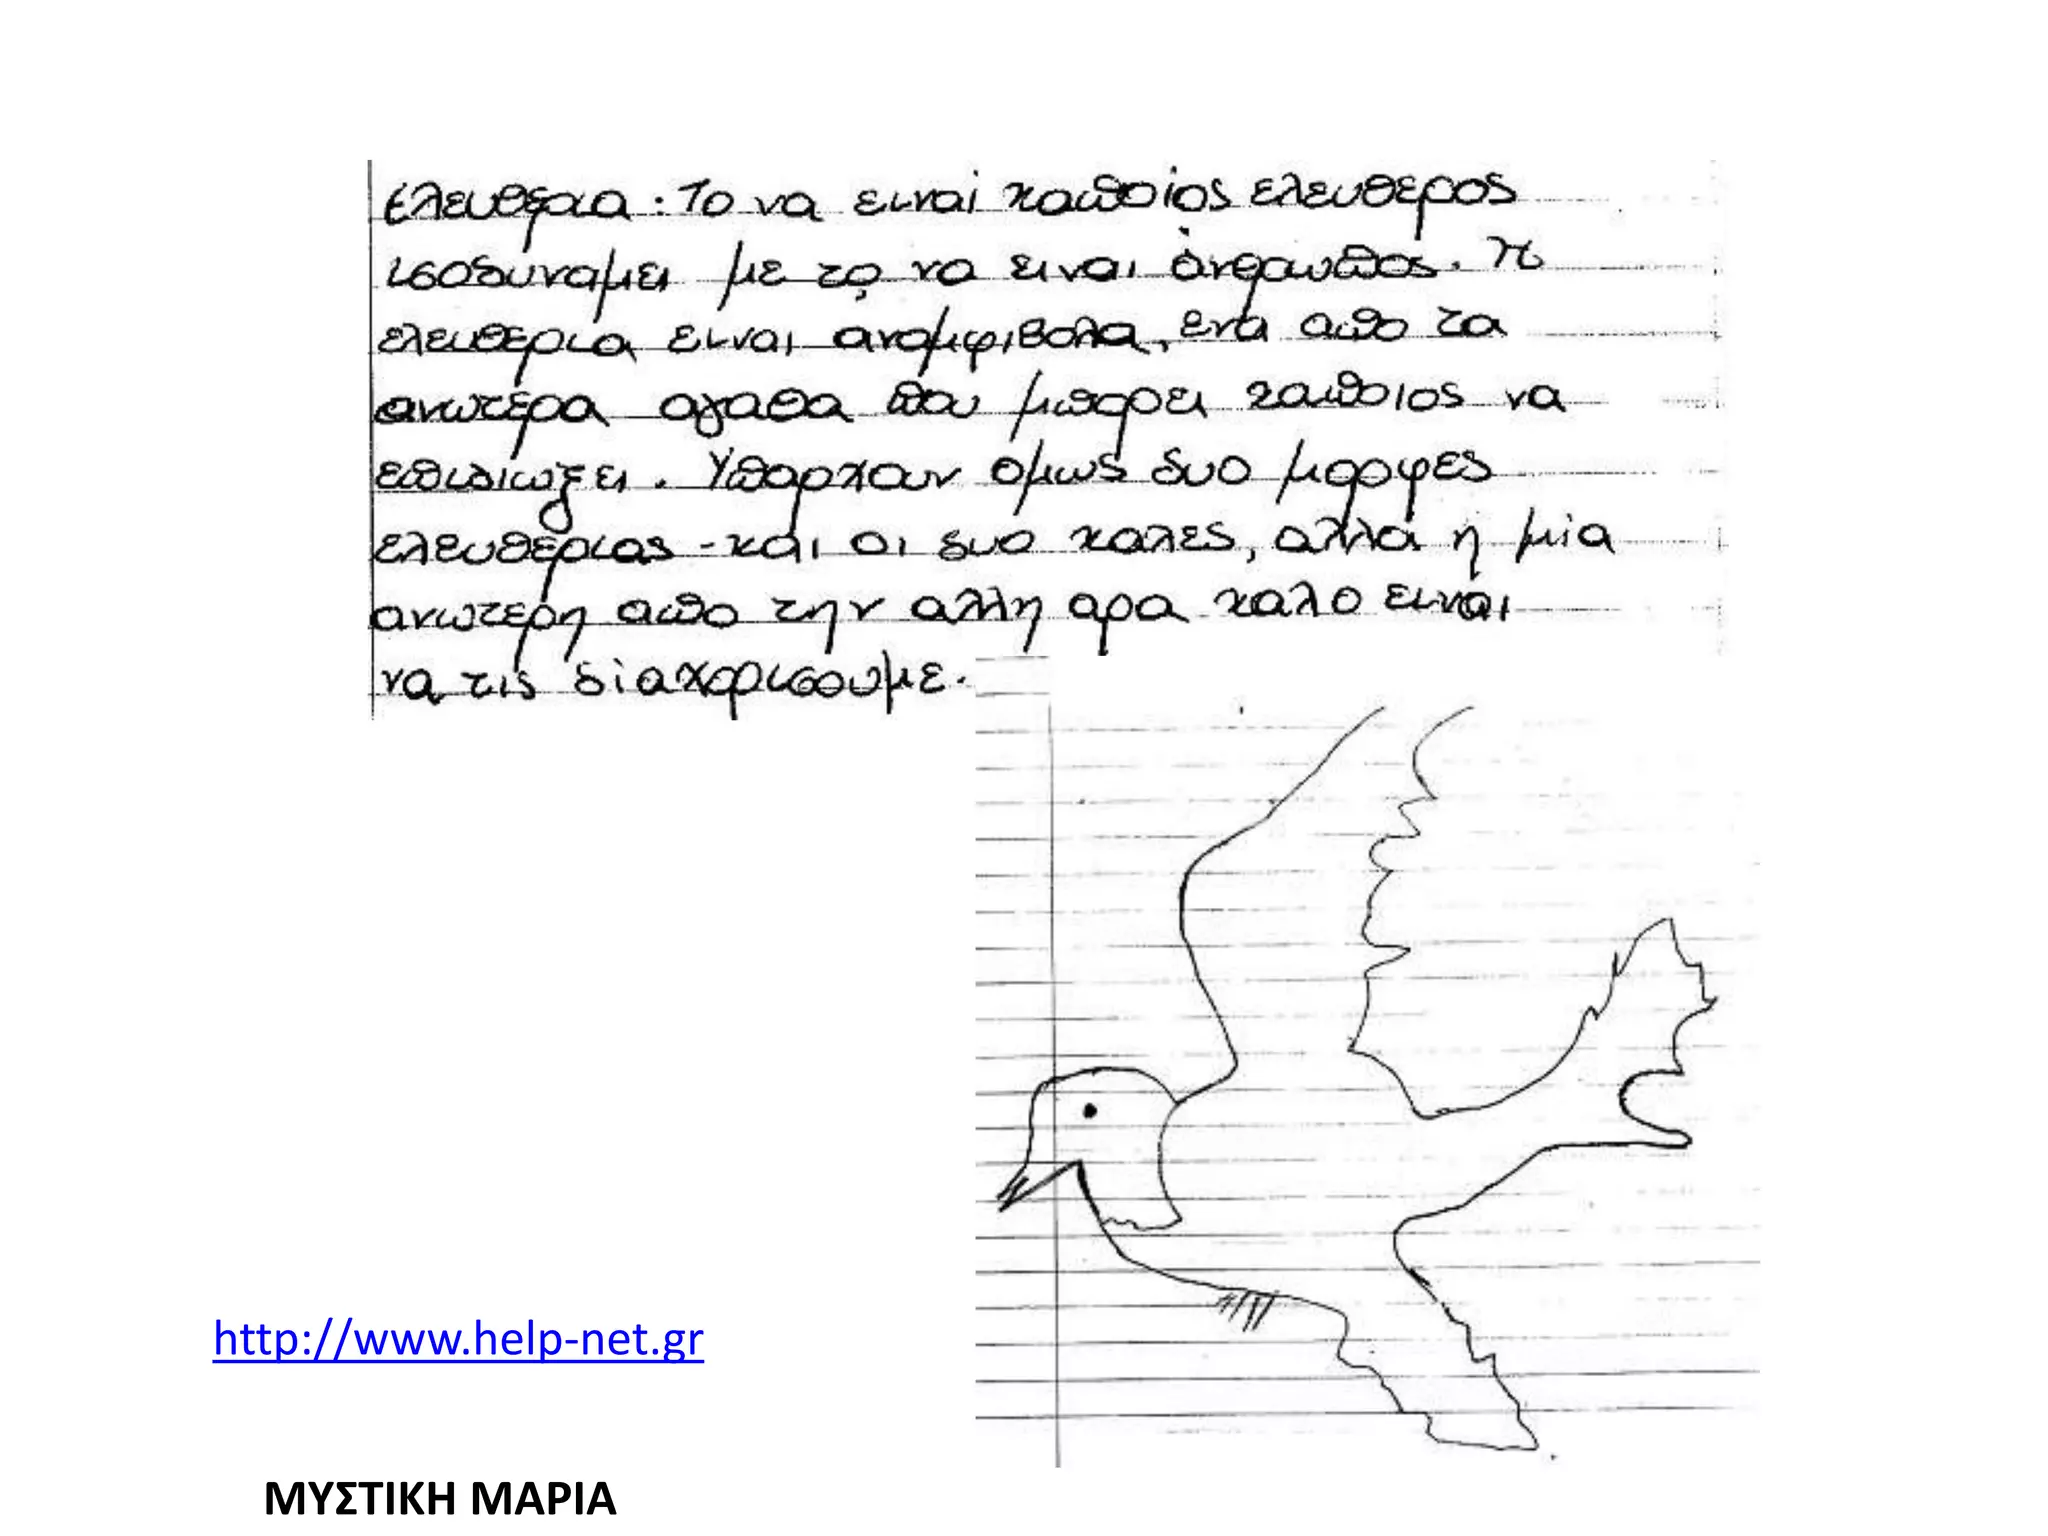 Ελευθερια: Το να ειναι καποιος ελευθερος
ισοδυναμει με το να ειναι ανθρωπος. Η
ελευθερια ειναι αναμφιβολα, ενα απο τα
ανωτερα αγαθα που μπορει καποιος να
επιδιωξει. Υπαρχουν ομως δυο μορφες
ελευθεριας - και οι δυο καλες, αλλα η μια
ανωτερη απο την αλλη αρα καλο ειναι
να τις διαχορισουμε.
http://www.help-net.gr
ΜΥΣΤΙΚΗ ΜΑΡΙΑ